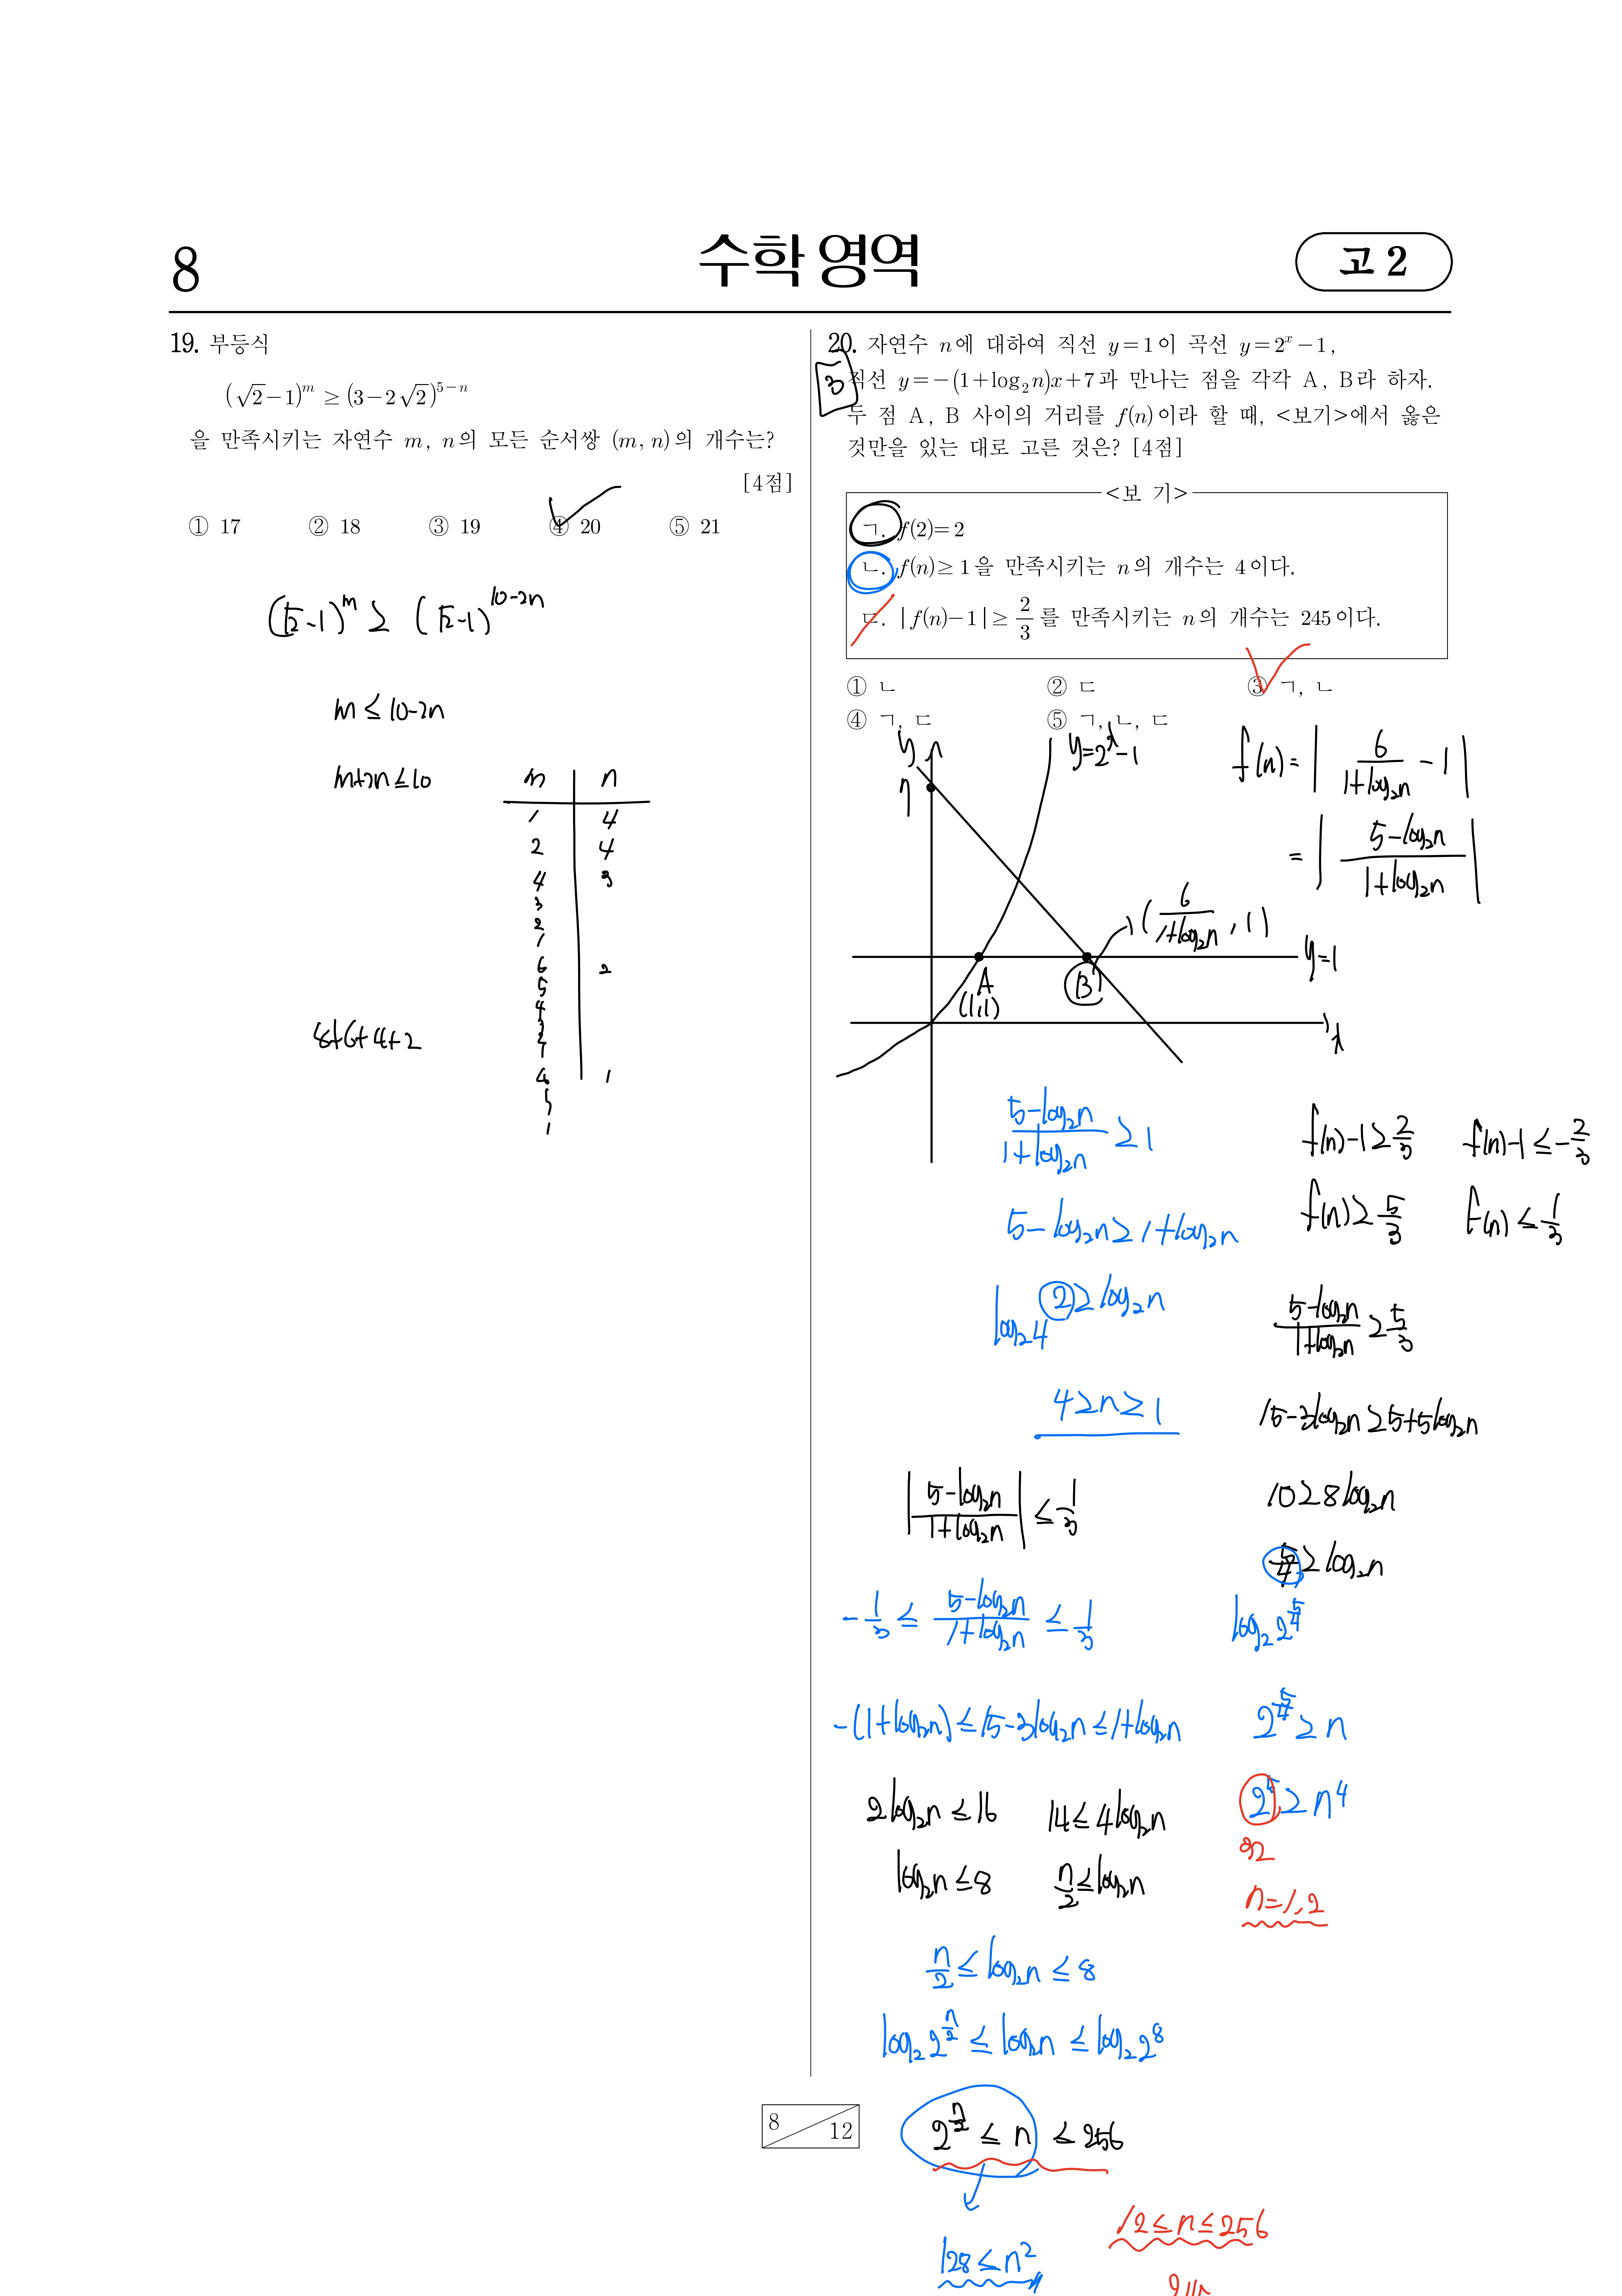 8
수학 영역
고 2
19. 부등식
(√2-1)^m ≥ (3-2√2)^(5-n)
을 만족시키는 자연수 m, n의 모든 순서쌍 (m, n)의 개수는?
[4점]
① 17 ② 18 ③ 19 ④ 20 ⑤ 21
(√2-1)^m ≥ (√2-1)^(10-2n)
m ≤ 10-2n
m+2n ≤ 10
m n
1 4
2 4
4 3
3
2
1
6 2
5
4
3
2
1
1
8+6+4+2
20. 자연수 n에 대하여 직선 y=1이 곡선 y=2^x-1,
직선 y=-(1+log₂n)x+7과 만나는 점을 각각 A, B라 하자.
두 점 A, B 사이의 거리를 f(n)이라 할 때, <보기>에서 옳은
것만을 있는 대로 고른 것은? [4점]
3
<보 기>
ㄱ. f(2)=2
ㄴ. f(n)≥1을 만족시키는 n의 개수는 4이다.
ㄷ. |f(n)-1|≥2/3를 만족시키는 n의 개수는 245이다.
① ㄴ ② ㄷ ③ ㄱ, ㄴ
④ ㄱ, ㄷ ⑤ ㄱ, ㄴ, ㄷ
y
7
y=2^x-1
f(n)=|6/(1+log₂n) -1|
=|(5-log₂n)/(1+log₂n)|
(6/(1+log₂n), 1)
y=1
A
(1,1)
B
x
(5-log₂n)/(1+log₂n) ≥ 1
5-log₂n ≥ 1+log₂n
2 ≥ log₂n
log₂4
4≥n≥1
f(n)-1≥2/3 f(n)-1≤-2/3
f(n)≥5/3 f(n)≤1/3
(5-log₂n)/(1+log₂n) ≥ 5/3
15-3log₂n≥5+5log₂n
10≥8log₂n
5/4≥log₂n
log₂2^(5/4)
2^(5/4)≥n
2^5≥n^4
32
n=1,2
|(5-log₂n)/(1+log₂n)| ≤ 1/3
-1/3 ≤ (5-log₂n)/(1+log₂n) ≤ 1/3
-(1+log₂n) ≤ 15-3log₂n ≤ 1+log₂n
2log₂n ≤ 16 14 ≤ 4log₂n
log₂n ≤ 8 7/2 ≤ log₂n
7/2 ≤ log₂n ≤ 8
log₂2^(7/2) ≤ log₂n ≤ log₂2^8
2^(7/2) ≤ n ≤ 256
128 ≤ n²
12≤n≤256
8
12